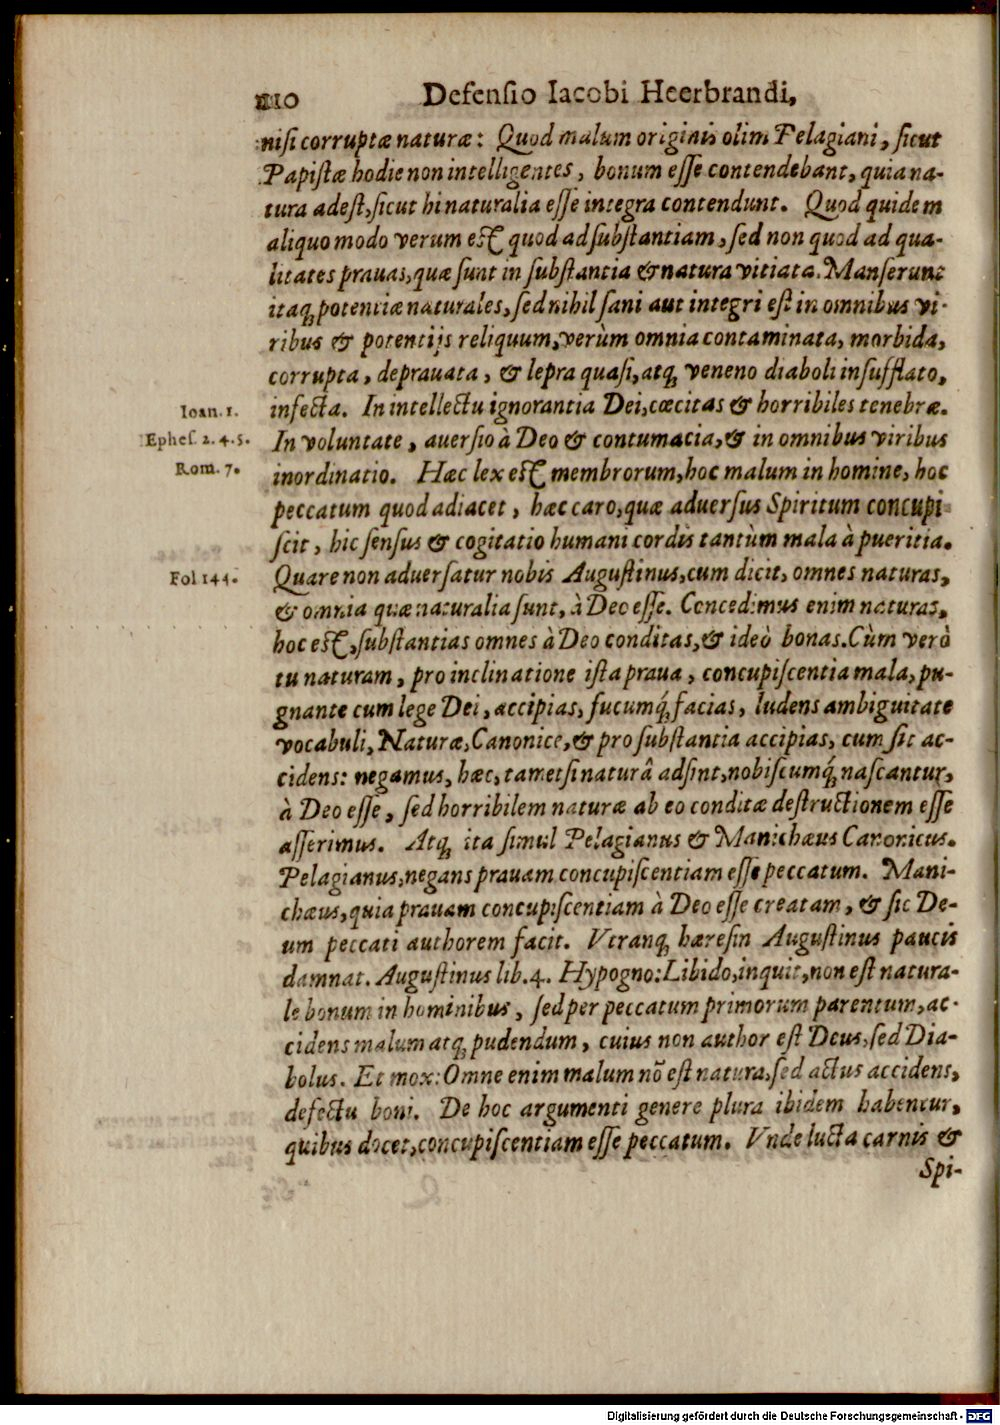 110 Defensio Iacobi Heerbrandi,
nisi corruptæ naturæ: Quod malum originis olim Pelagiani, sicut
Papistæ hodie non intelligentes, bonum esse contendebant, quia na-
tura adest, sicut hi naturalia esse integra contendunt. Quod quidem
aliquo modo verum est quod ad substantiam, sed non quod ad qua-
litates prauas, quæ sunt in substantia & natura vitiata. Manserunt
itaq; potentiæ naturales, sed nihil sani aut integri est in omnibus vi-
ribus & potentijs reliquum, verùm omnia contaminata, morbida,
corrupta, deprauata, & lepra quasi, atq; veneno diaboli insufflato,
Ioan. 1. infecta. In intellectu ignorantia Dei, cœcitas & horribiles tenebræ.
Ephes. 2. 4. 5. In voluntate, auersio à Deo & contumacia, & in omnibus viribus
Rom. 7. inordinatio. Hæc lex est membrorum, hoc malum in homine, hoc
peccatum quod adiacet, hæc caro, quæ aduersus Spiritum concupi-
scit, hic sensus & cogitatio humani cordis tantùm mala à pueritia.
Fol 144. Quare non aduersatur nobis Augustinus, cum dicit, omnes naturas,
& omnia quæ naturalia sunt, à Deo esse. Concedimus enim naturas,
hoc est, substantias omnes à Deo conditas, & ideò bonas. Cùm verò
tu naturam, pro inclinatione ista praua, concupiscentia mala, pu-
gnante cum lege Dei, accipias, fucumq́; facias, ludens ambiguitate
vocabuli, Naturæ, Canonice, & pro substantia accipias, cum sit ac-
cidens: negamus, hæc, tametsi naturâ adsint, nobiscumq́; nascantur,
à Deo esse, sed horribilem naturæ ab eo conditæ destructionem esse
asserimus. Atq; ita simul Pelagianus & Manichæus Canonicus.
Pelagianus, negans prauam concupiscentiam esse peccatum. Mani-
chæus, quia prauam concupiscentiam à Deo esse creatam, & sic De-
um peccati authorem facit. Vtranq; hæresin Augustinus paucis
damnat. Augustinus lib. 4. Hypogno: Libido, inquit, non est natura-
le bonum in hominibus, sed per peccatum primorum parentum, ac-
cidens malum atq; pudendum, cuius non author est Deus, sed Dia-
bolus. Et mox: Omne enim malum nō est natura, sed actus accidens,
defectu boni. De hoc argumenti genere plura ibidem habentur,
quibus docet, concupiscentiam esse peccatum. Vnde lucta carnis &
Spi-
Digitalisierung gefördert durch die Deutsche Forschungsgemeinschaft - DFG